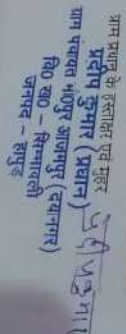 ग्राम प्रधान के हस्ताक्षर एवं मुहर
प्रदीप कुमार (प्रधान)
ग्राम पंचायत मंसूरपुर आजमपुर (दयानगर)
वि० ख० – सिम्भावली
जनपद – हापुड़